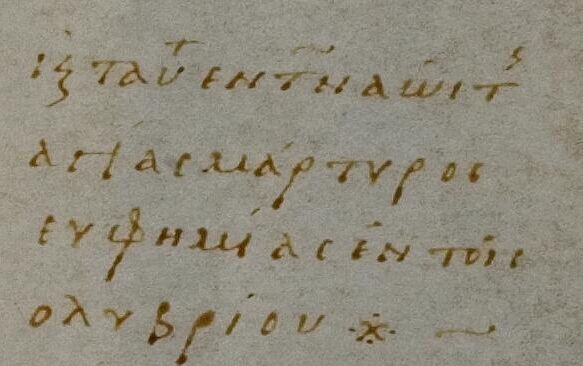 ιξ ταυτ εν τ͂ ναώι τς
αγίας μάρτυρος
ευφημίας ἐν τοῖς
ολυβρίου ※ ~